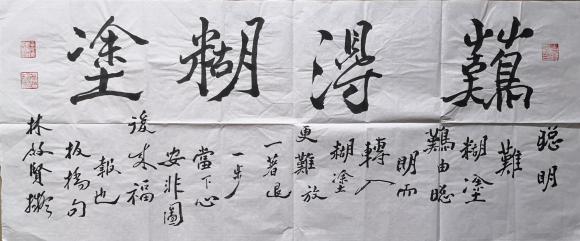 難得糊塗
聰明
難
糊塗
難由聰
明而
轉入
糊塗
更難放
一著退
一步
當下心
安非圖
後來福
報也
板橋句
林賢擬